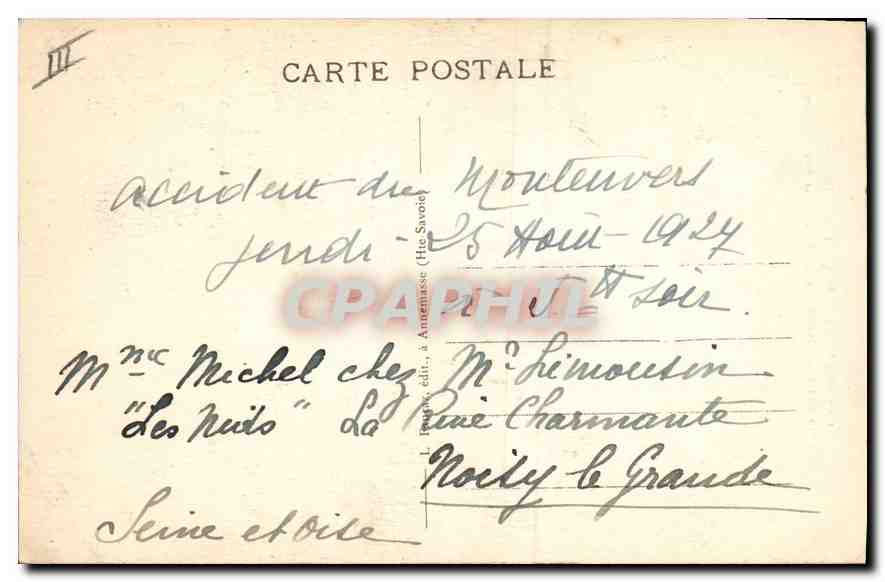 III
CARTE POSTALE
accident du Montenvers
jeudi - 25 Août - 1927
à 5 H soir.
Mme Michel chez Mr Limousin
"Les Nids" La Rive Charmante
Noisy le Grande
Seine et Oise
édit., à Annemasse (Hte Savoie)
CPAPHIL